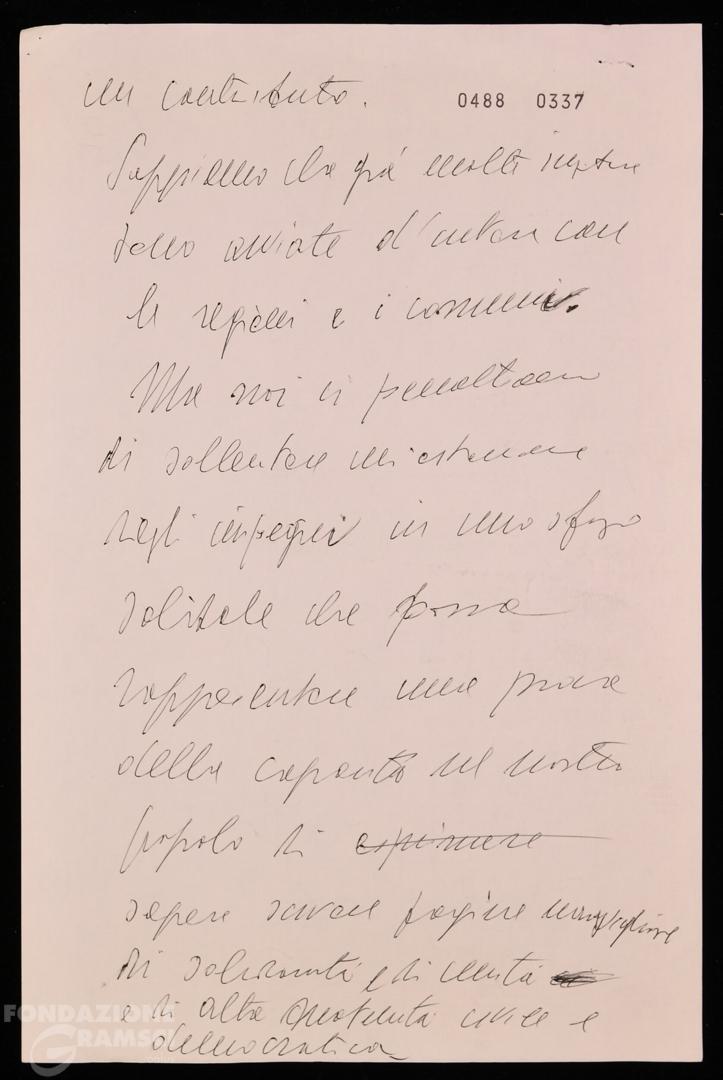 un contributo.
0488 0337
Sappiamo che già molte iniziative
sono avviate d'intesa con
le regioni e i comuni.
Ma noi ci permettiamo
di sollecitare un'estensione
degli impegni in uno sforzo
solidale che possa
rappresentare una prova
della capacità del nostro
popolo di esprimere
sapere scrivere pagine meravigliose
di solidarietà e di unità
e di alta civile e
democratica
FONDAZIONE
GRAMSCI